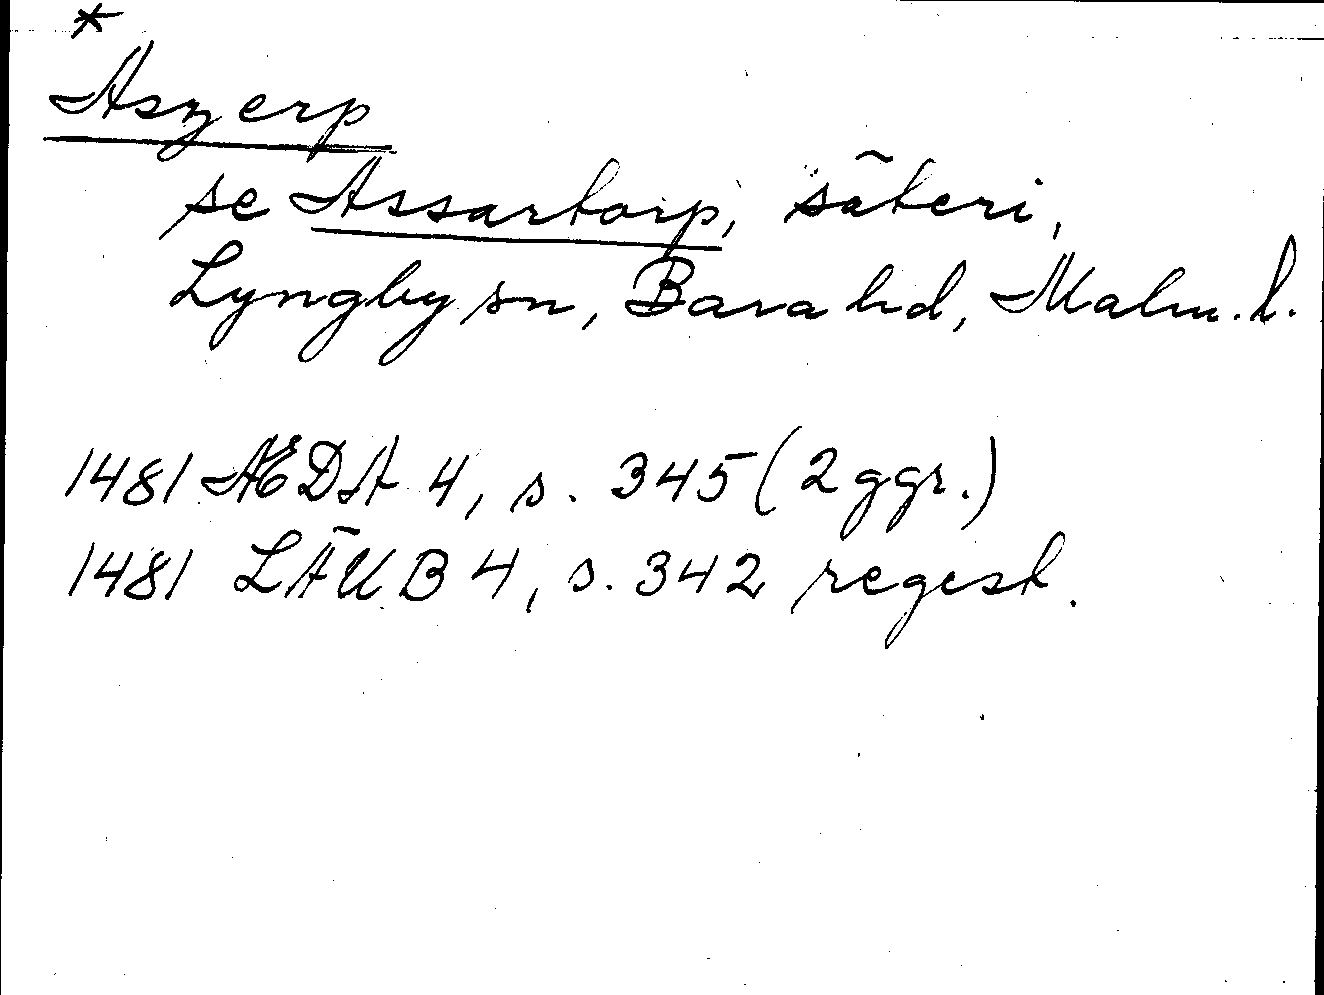 *
Aszerp
se Assartorp, säteri,
Lyngby sn, Bara hd, Malm. l.
1481 ÆDA 4, s. 345 (2 ggr.)
1481 LÄUB 4, s. 342 regest.